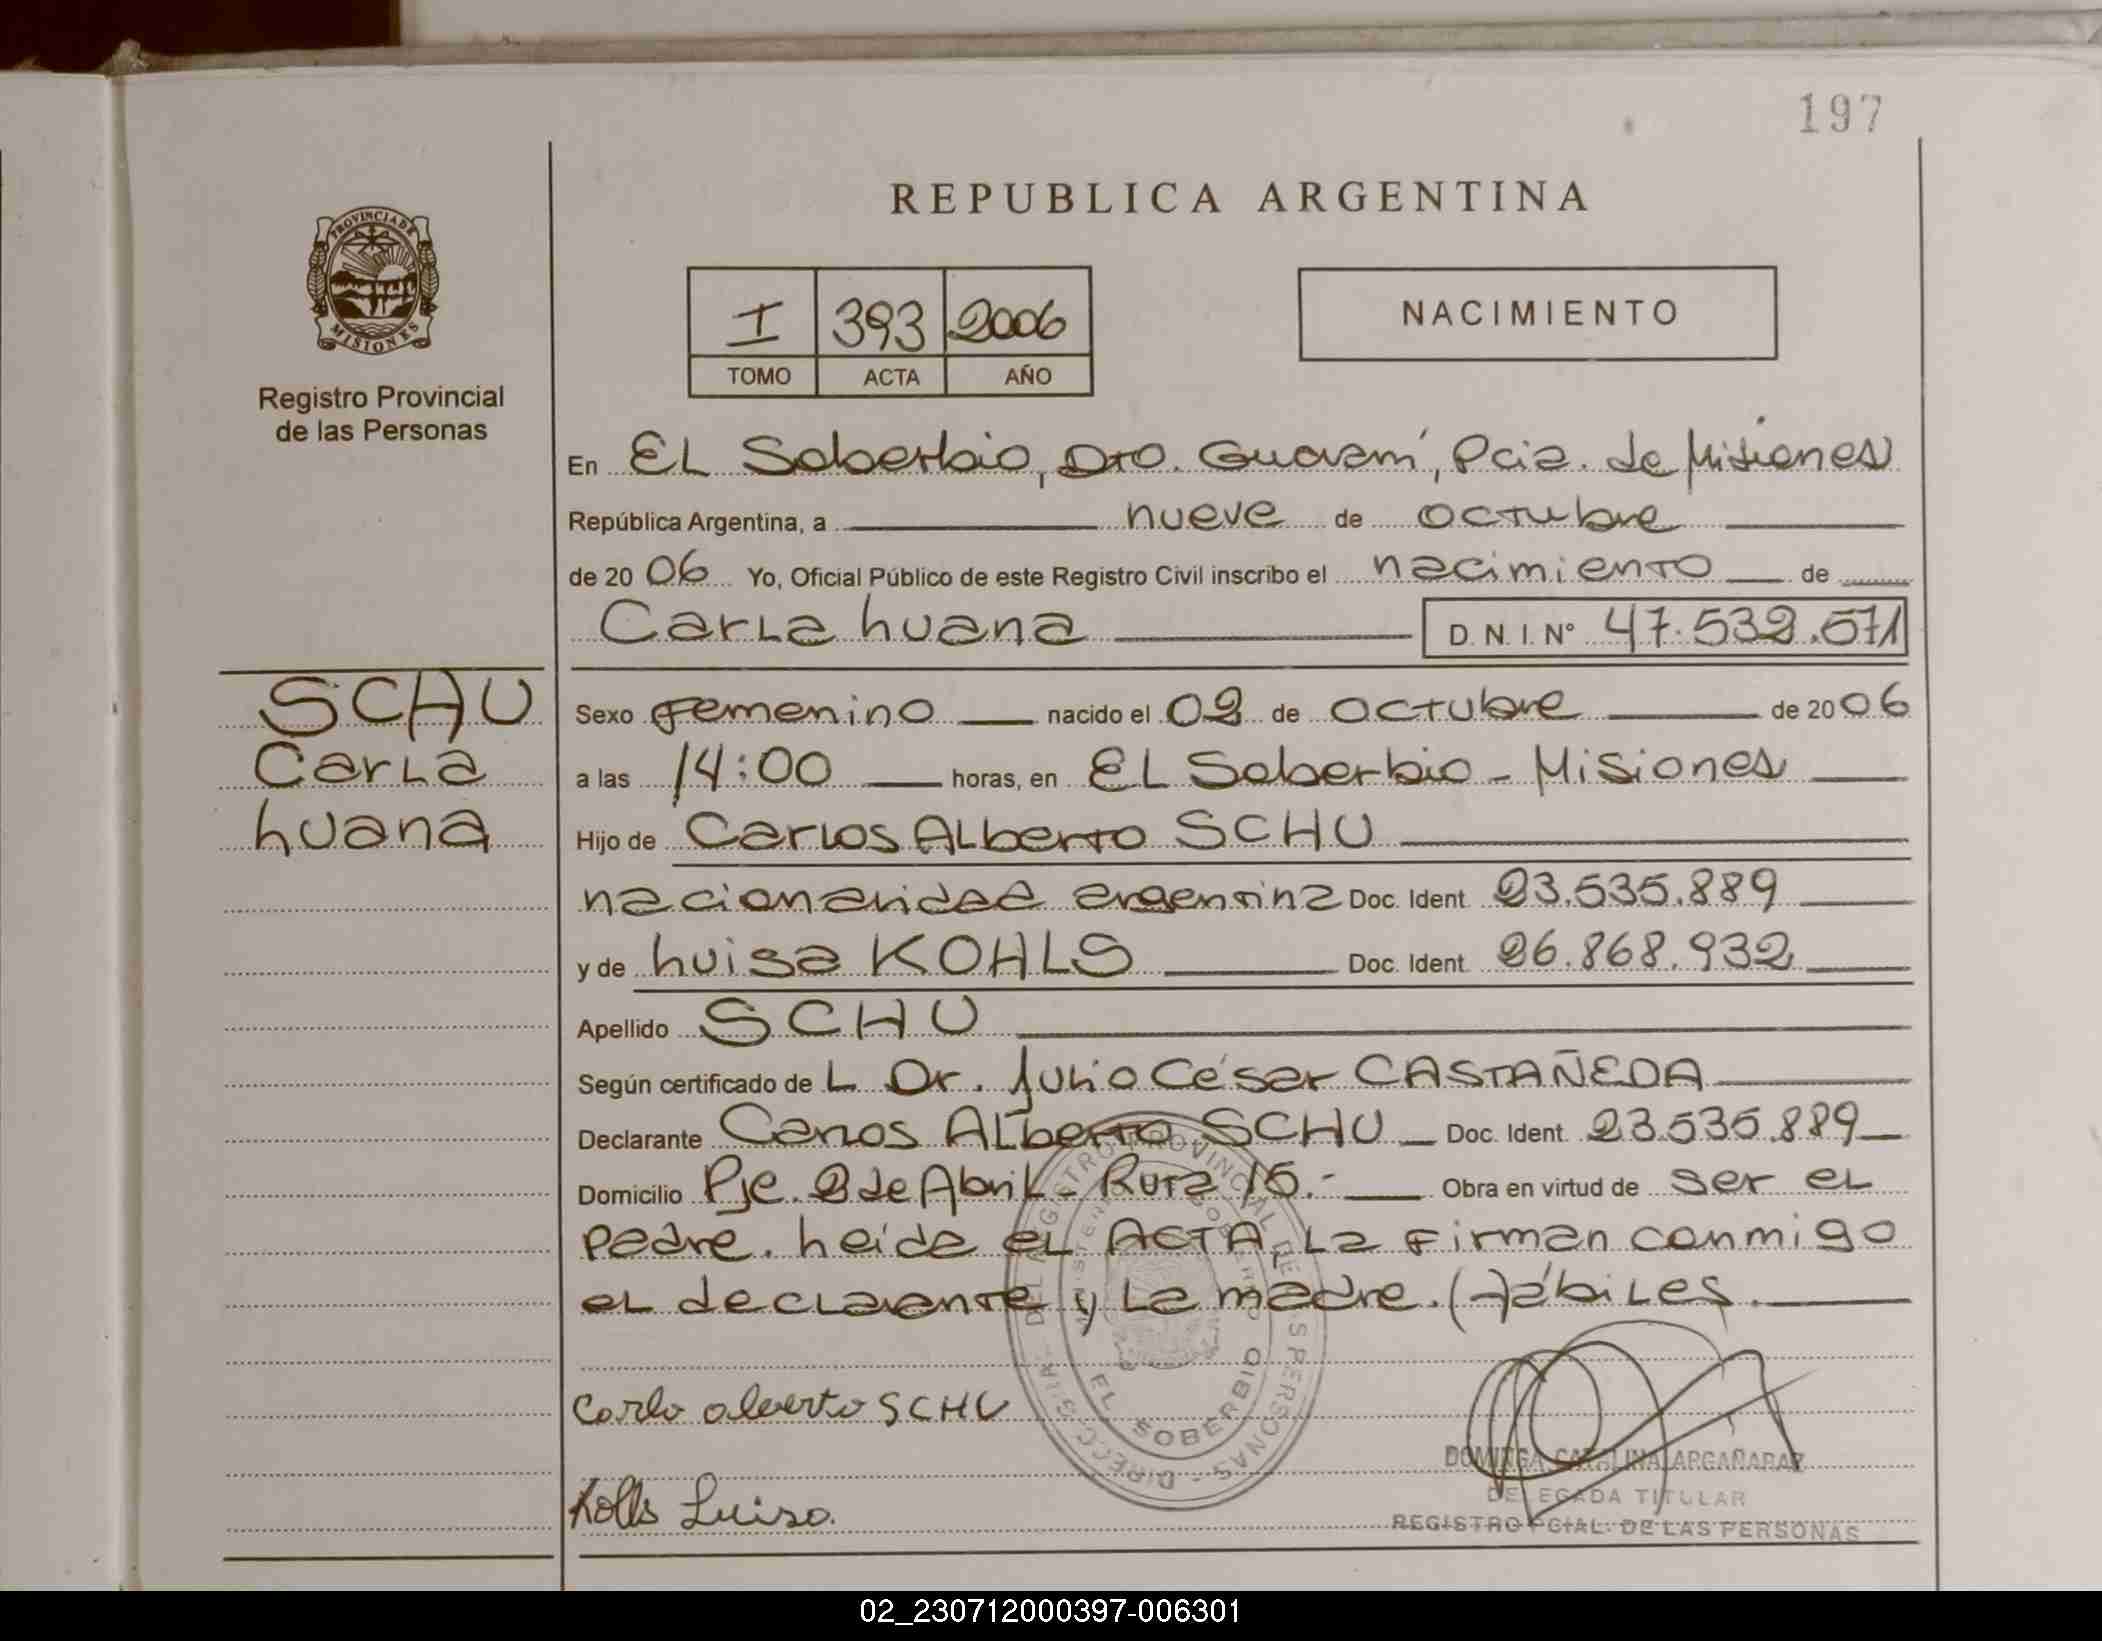 197
REPUBLICA ARGENTINA
PROVINCIA DE
MISIONES
Registro Provincial
de las Personas
I 393 2006
TOMO ACTA AÑO
NACIMIENTO
En EL Soberbio, Dto. Guaraní, Pcia. de Misiones
República Argentina, a nueve de octubre
de 20 06 Yo, Oficial Público de este Registro Civil inscribo el nacimiento de
Carla Luana D. N. I. Nº 47.532.571
SCHU
Carla
Luana
Sexo femenino nacido el 02 de octubre de 20 06
a las 14:00 horas, en EL Soberbio - Misiones
Hijo de Carlos Alberto SCHU
nacionalidad argentina Doc. Ident. 23.535.889
y de Luisa KOHLS Doc. Ident. 26.868.932
Apellido SCHU
Según certificado de L Dr. Julio César CASTAÑEDA
Declarante Carlos Alberto SCHU Doc. Ident. 23.535.889
Domicilio Pje. 2 de Abril - Ruta 15.- Obra en virtud de ser el
padre. Leída el ACTA, la firman conmigo
el declarante y la madre. Hábiles.
Carlo alberto SCHU
Kolls Luisa.
DIRECC. GRAL. DEL REGISTRO PROVINCIAL DE LAS PERSONAS
EL SOBERBIO
DOMINGA CATALINA ARGAÑARAZ
DELEGADA TITULAR
REGISTRO PCIAL. DE LAS PERSONAS
02_230712000397-006301